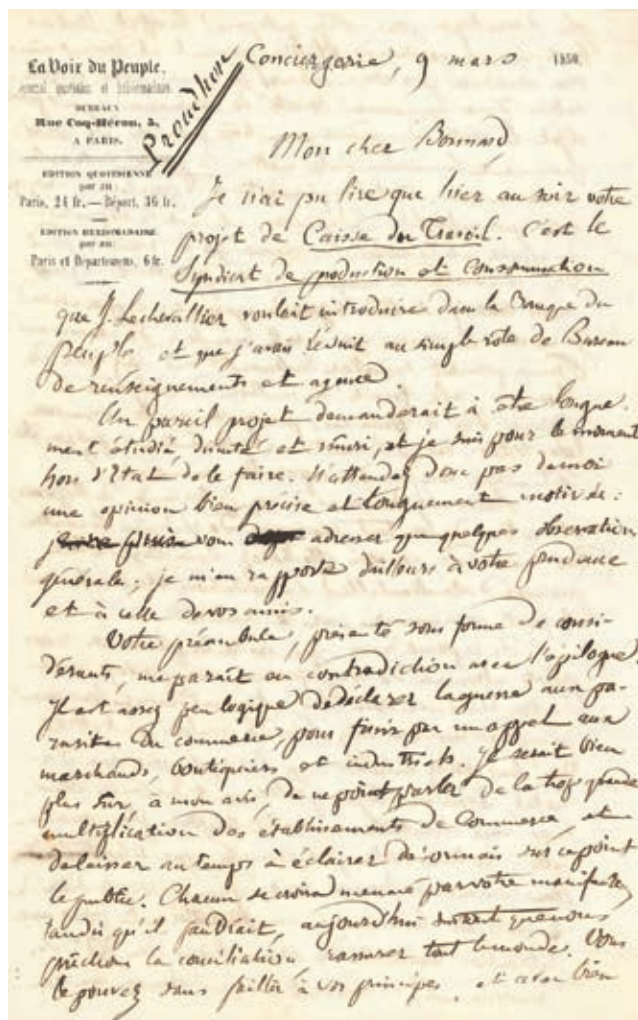 La Voix du Peuple.
BUREAUX
Rue Coq-Héron, 5,
A PARIS.
EDITION QUOTIDIENNE
par an:
Paris, 24 fr. — Départ, 36 fr.
EDITION HEBDOMADAIRE
par an:
Paris et Départemens, 6 fr.
Proudhon
Conciergerie, 9 mars 1850.
Mon cher Bonnard,
Je n'ai pu lire que hier au soir votre
projet de Caisse du Travail. C'est le
Syndicat de production et consommation
que J. Lechevallier voulait introduire dans la Banque du
peuple et que j'avais réduit au simple rôle de Bureau
de renseignements et agence.
Un pareil projet demanderait à être longue-
ment étudié, discuté et mûri, et je suis pour le moment
hors d'Etat de le faire. N'attendez donc pas de moi
une opinion bien précise et longuement motivée :
je vous adresser que quelques observations
générales ; je m'en rapporte d'ailleurs à votre prudence
et à celle de vos amis.
Votre préambule, présenté sous forme de consi-
dérants, me parait en contradiction avec l'épilogue.
Il est assez peu logique de déclarer la guerre aux pa-
rasites du commerce, pour finir par un appel aux
marchands, boutiquiers et industriels. Il serait bien
plus sûr, à mon avis, de ne point parler de la trop grande
multiplication des établissements de Commerce, et
de laisser au temps à éclairer désormais sur ce point
le public. Chacun se croira menacé par votre manifeste,
tandis qu'il faudrait, aujourd'hui surtout que nous
prêchons la conciliation rassurer tout le monde. Vous
le pouvez sans faillir à vos principes, et avec bien